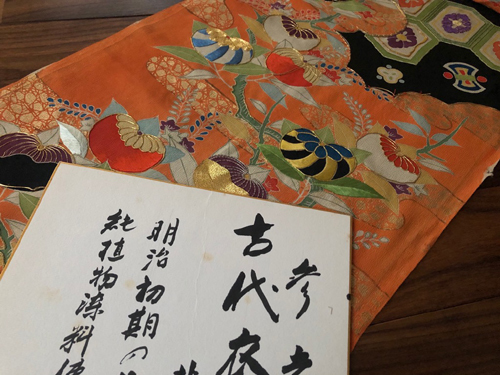 参考
古代衣
明治初期の
純植物染料使